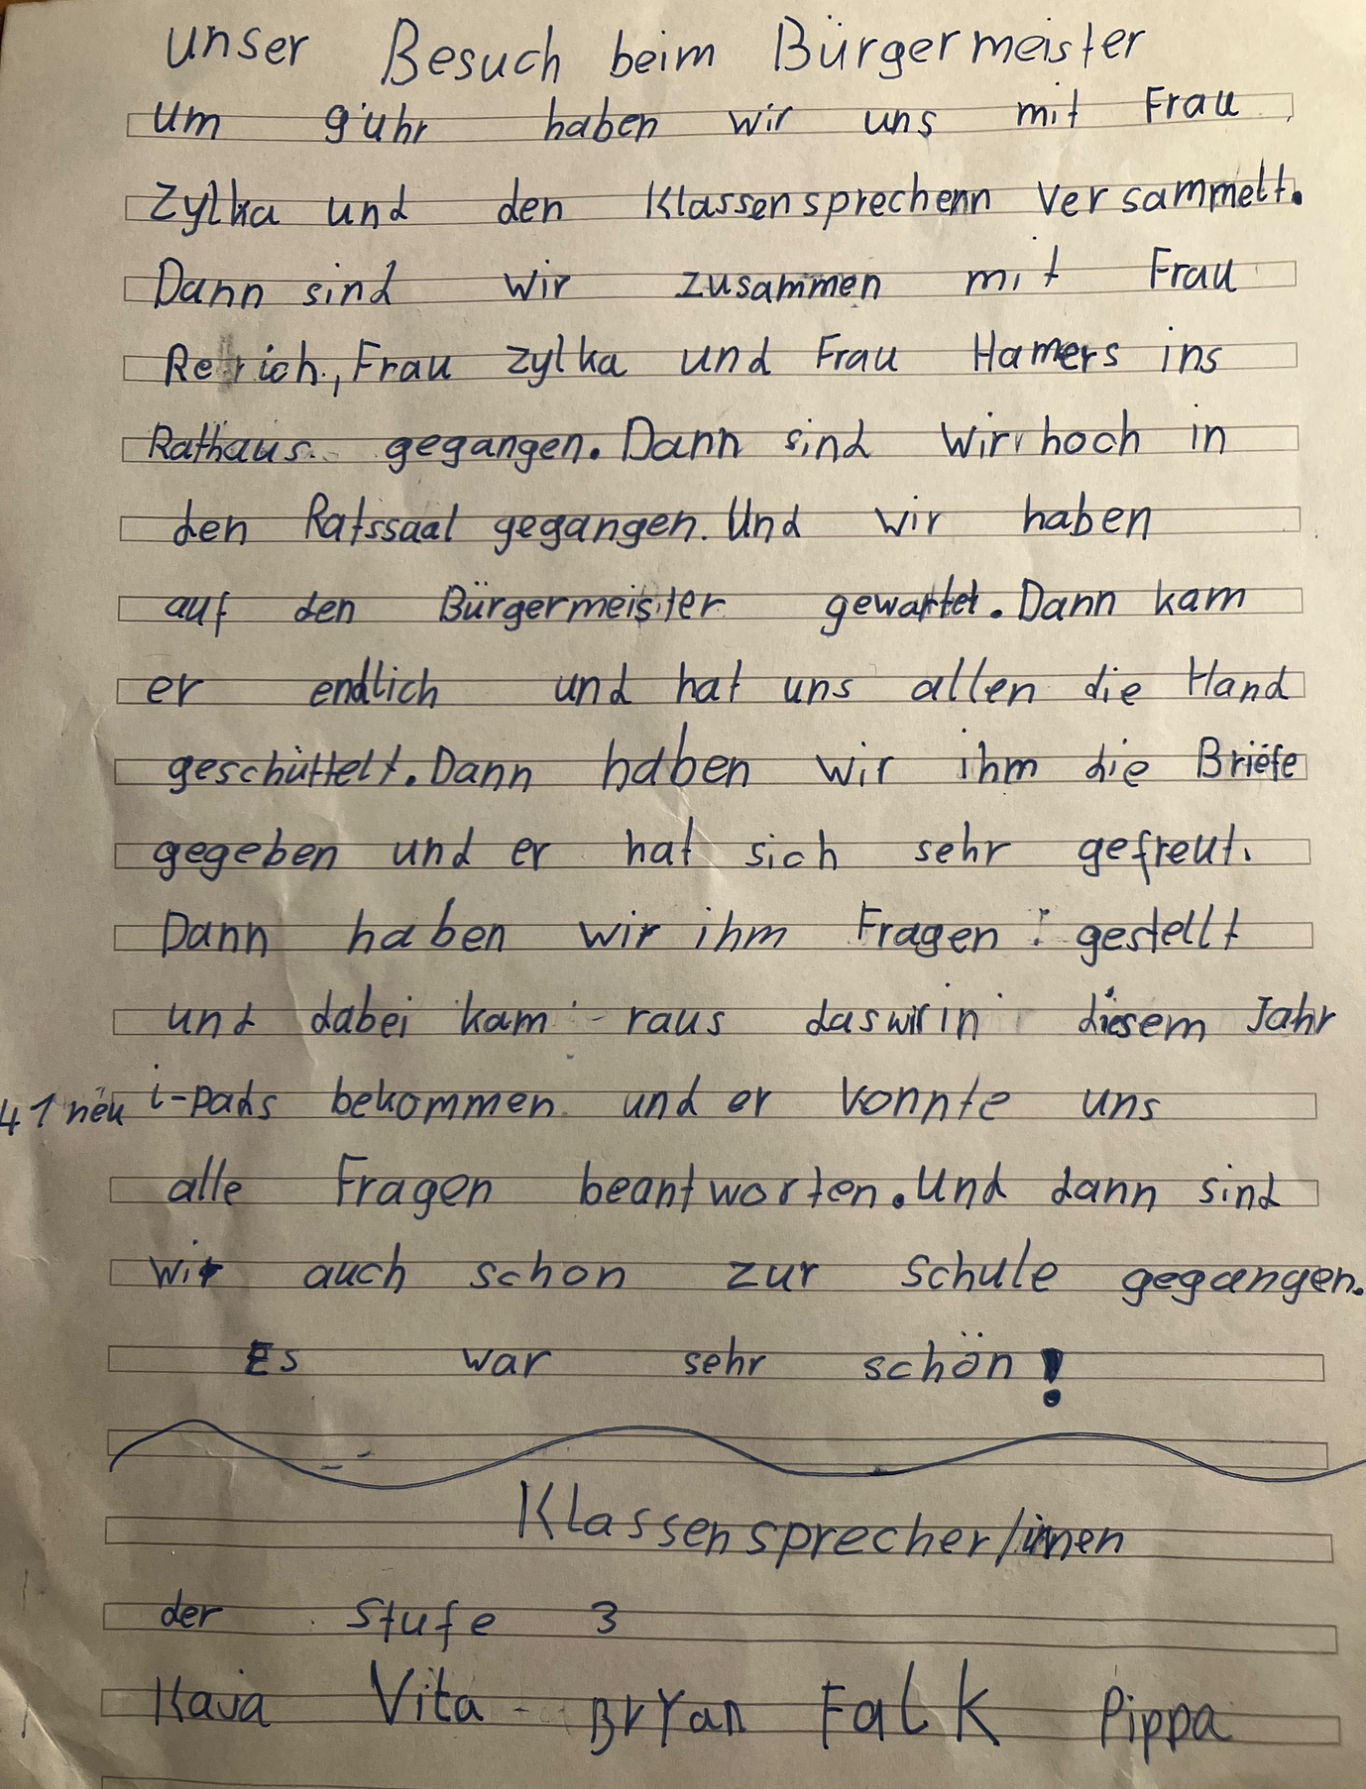 unser Besuch beim Bürgermeister
um 9 uhr haben wir uns mit Frau
Zylka und den Klassensprechenn versammelt.
Dann sind wir zusammen mit Frau
Frau Zylka und Frau Hamers ins
Rathaus gegangen. Dann sind wir hoch in
den Ratssaal gegangen. Und wir haben
auf den Bürgermeister gewartet. Dann kam
er endlich und hat uns allen die Hand
geschüttelt. Dann haben wir ihm die Briefe
gegeben und er hat sich sehr gefreut.
Dann haben wir ihm Fragen gestellt
und dabei kam raus das wir in diesem Jahr
41 neu i-Pads bekommen und er konnte uns
alle Fragen beantworten. Und dann sind
wir auch schon zur Schule gegangen.
Es war sehr schön!
Klassensprecher/innen
der Stufe 3
Kaja Vita Bryan Falk Pippa